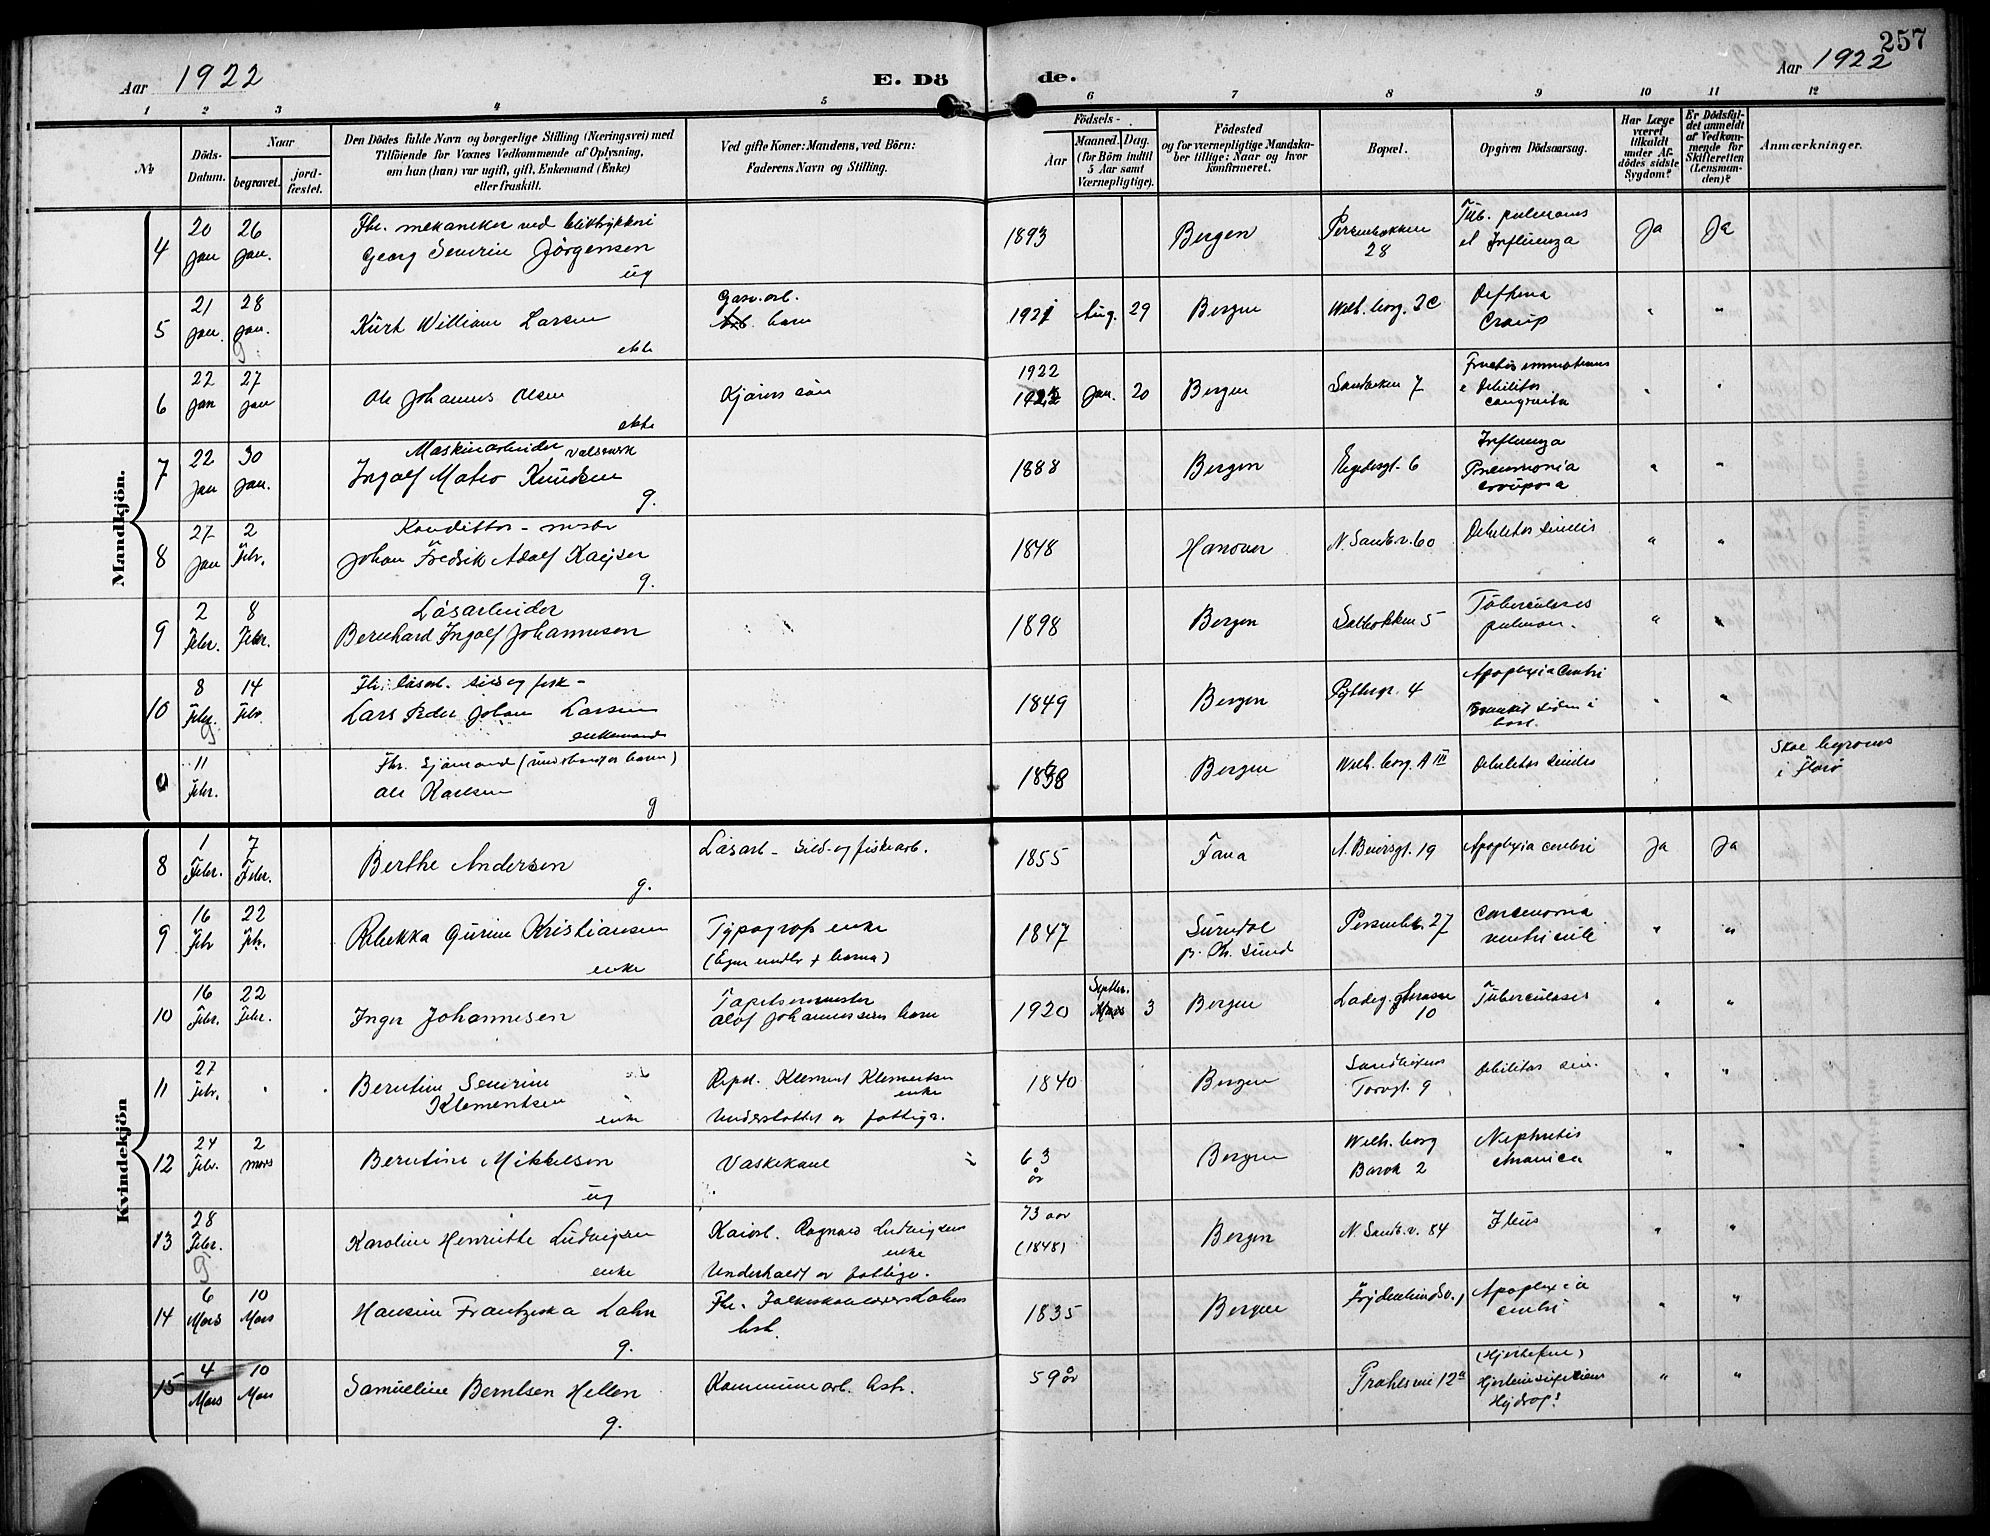 257
Aar 1922
E. Dö
de.
Aar 1922
1 2 3 4 5 6 7 8 9 10 11 12
No.
Döds-
Datum.
Naar
begravet.
jord-
fæstet.
Den Dödes fulde Navn og borgerlige Stilling (Næringsvei) med
Tilföiende for Voxnes Vedkommende af Oplysning,
om han (hun) var ugift, gift, Enkemand (Enke)
eller fraskilt.
Ved gifte Koner: Mandens, ved Börn:
Faderens Navn og Stilling.
Födsels-
Aar
Maaned. Dag.
(for Börn indtil
5 Aar samt
Værnepligtige).
Födested
og for værnepligtige Mandska-
ber tillige: Naar og hvor
konfirmeret.
Bopæl.
Opgiven Dödsaarsag.
Har Læge
været
tilkaldt
under Af-
dödes sidste
Sygdom?
Er Dödsfal-
det anmeldt
af Vedkom-
mende for
Skifteretten
(Lensman-
den)?
Anmærkninger.
Mandkjön.
4 20 Jan 26 Jan. Fhv. mekaniker ved
Georg Severin Jörgensen
ug
1893 Bergen 28 Tub. pulmonis
et Influenza Ja Ja
5 21 Jan. 28 Jan. Kurt William Larsen
ekte
Gasv. arb.
barn
1921 Aug. 29 Bergen Wilh. borg. 2C Difteria
Croup " "
6 22 Jan 27 Jan Ole Johannes Olsen
ekte
sön
1922
Jan. 20 Bergen Sandviken 7
Debilitas
congenita " "
7 22 Jan 30 Jan. Maskinarbeider valsverk
Ingolf Mateo Knudsen
g.
1888 Bergen 6 Influenza
Pneumonia
crouposa " "
8 27 Jan 2 Febr. Konditor - mester
Johan Fredrik Adolf Kayser
g.
1848 Hanover N. Sandv. v. 60 Debilitas senilis " "
9 2 Febr. 8 Febr. Läsarbeider
Bernhard Ingolf Johannesen
1898 Bergen 5 Tuberculosis
pulmon. " "
10 8 Febr. 14 Febr. Fhv. läsarb. sild og fisk -
Lars Peder Johan Larsen
enkemand
1849 Bergen 4 Apoplexia cerebri
" "
11 Febr. Fhv. Sjömand
Ole Karlsen
g
Bergen Wilh. borg A III Debilitas senilis Skal begraves
i Florö
Kvindekjön
8 1 Febr. 7 Febr. Berthe Andersen
g.
Läsarb - Sild- og fiskearb.
1855 Fana 19 Apoplexia cerebri Ja Ja
9 16 Febr 22 Feb. Rebekka Gurine Kristiansen
enke
Typograf enke
1847 Surndal
p. Kr. Sund 27 Carcinoma
ventriculi " "
10 16 Febr. 22 Febr. Inger Johannesen
Tapetsermester
Olof Johannessens barn
1920 Septbr. 3 Bergen 10 Tuberculosis " "
11 27 Febr. Berntine Severine
Klementsen
enke
Repsl. Klement Klementsen
enke
Understöttet av fattigv.
1840 Bergen
Torvgt. 9 Debilitas sen. " "
12 24 Febr. 2 mars Berntine Mikkelsen
ug
Vaskekone
63
år Bergen Wilh. borg
Barak 2 Nephritis
chronica " "
13 28 Febr. Karoline Henriette Ludvigsen
enke
Kaiarb. Ragnvald Ludvigsens
enke
Underholdt av fattigv.
73 aar
(1848) Bergen N. Sandv. v. 84 Ileus " "
14 6 Mars 10 Mars Hansine Frantziska Lahn
g.
Fhv. Folkeskolelærer Lahns
hst.
1835 Bergen Apoplexia
cerebri " "
15 4 Mars 10 Mars Samueline Berntsen Hellen
g.
Kommunearb. hstr.
59 år 12a (Hjertefeil)
Hydrops " "